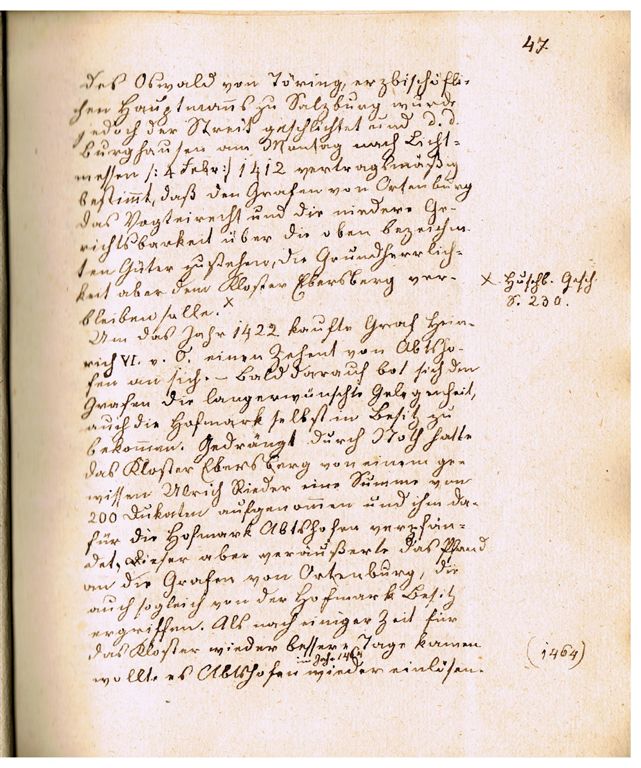 47
des Oswald von Töring, erzbischöfli-
chen Hauptmanns zu Salzburg wurde
jedoch der Streit geschlichtet und d. d.
Burghausen am Montag nach Licht-
messen /: 4 Febr:/ 1412 vertragsmäßig
bestimmt, daß den Grafen von Ortenburg
das Vogteirecht und die niedere Ge-
richtsbarkeit über die oben bezeichn-
ten Güter zustehen, die Grundherrlich-
keit aber dem Kloster Ebersberg ver-
bleiben solle. x
x Huschb. Gesch.
S. 230.
Um das Jahr 1422 kaufte Graf Hein-
rich VI. v. O. einen Zehent von Abtsho-
fen an sich. – Bald darauf bot sich den
Grafen die langerwünschte Gelegenheit,
auch die Hofmark selbst in Besitz zu
bekommen. Gedrängt durch Noth hatte
das Kloster Ebersberg von einem ge-
wissen Ulrich Rieder eine Summe von
200 Dukaten aufgenommen und ihm da-
für die Hofmark Abtshofen verpfän-
det. Dieser aber veräußerte das Pfand
an die Grafen von Ortenburg, die
auch sogleich von der Hofmark Besitz
ergriffen. Als nach einiger Zeit für
das Kloster wieder bessere Tage kamen
im Jahr 1464
wollte es Abtshofen wieder einlösen.
(1464)